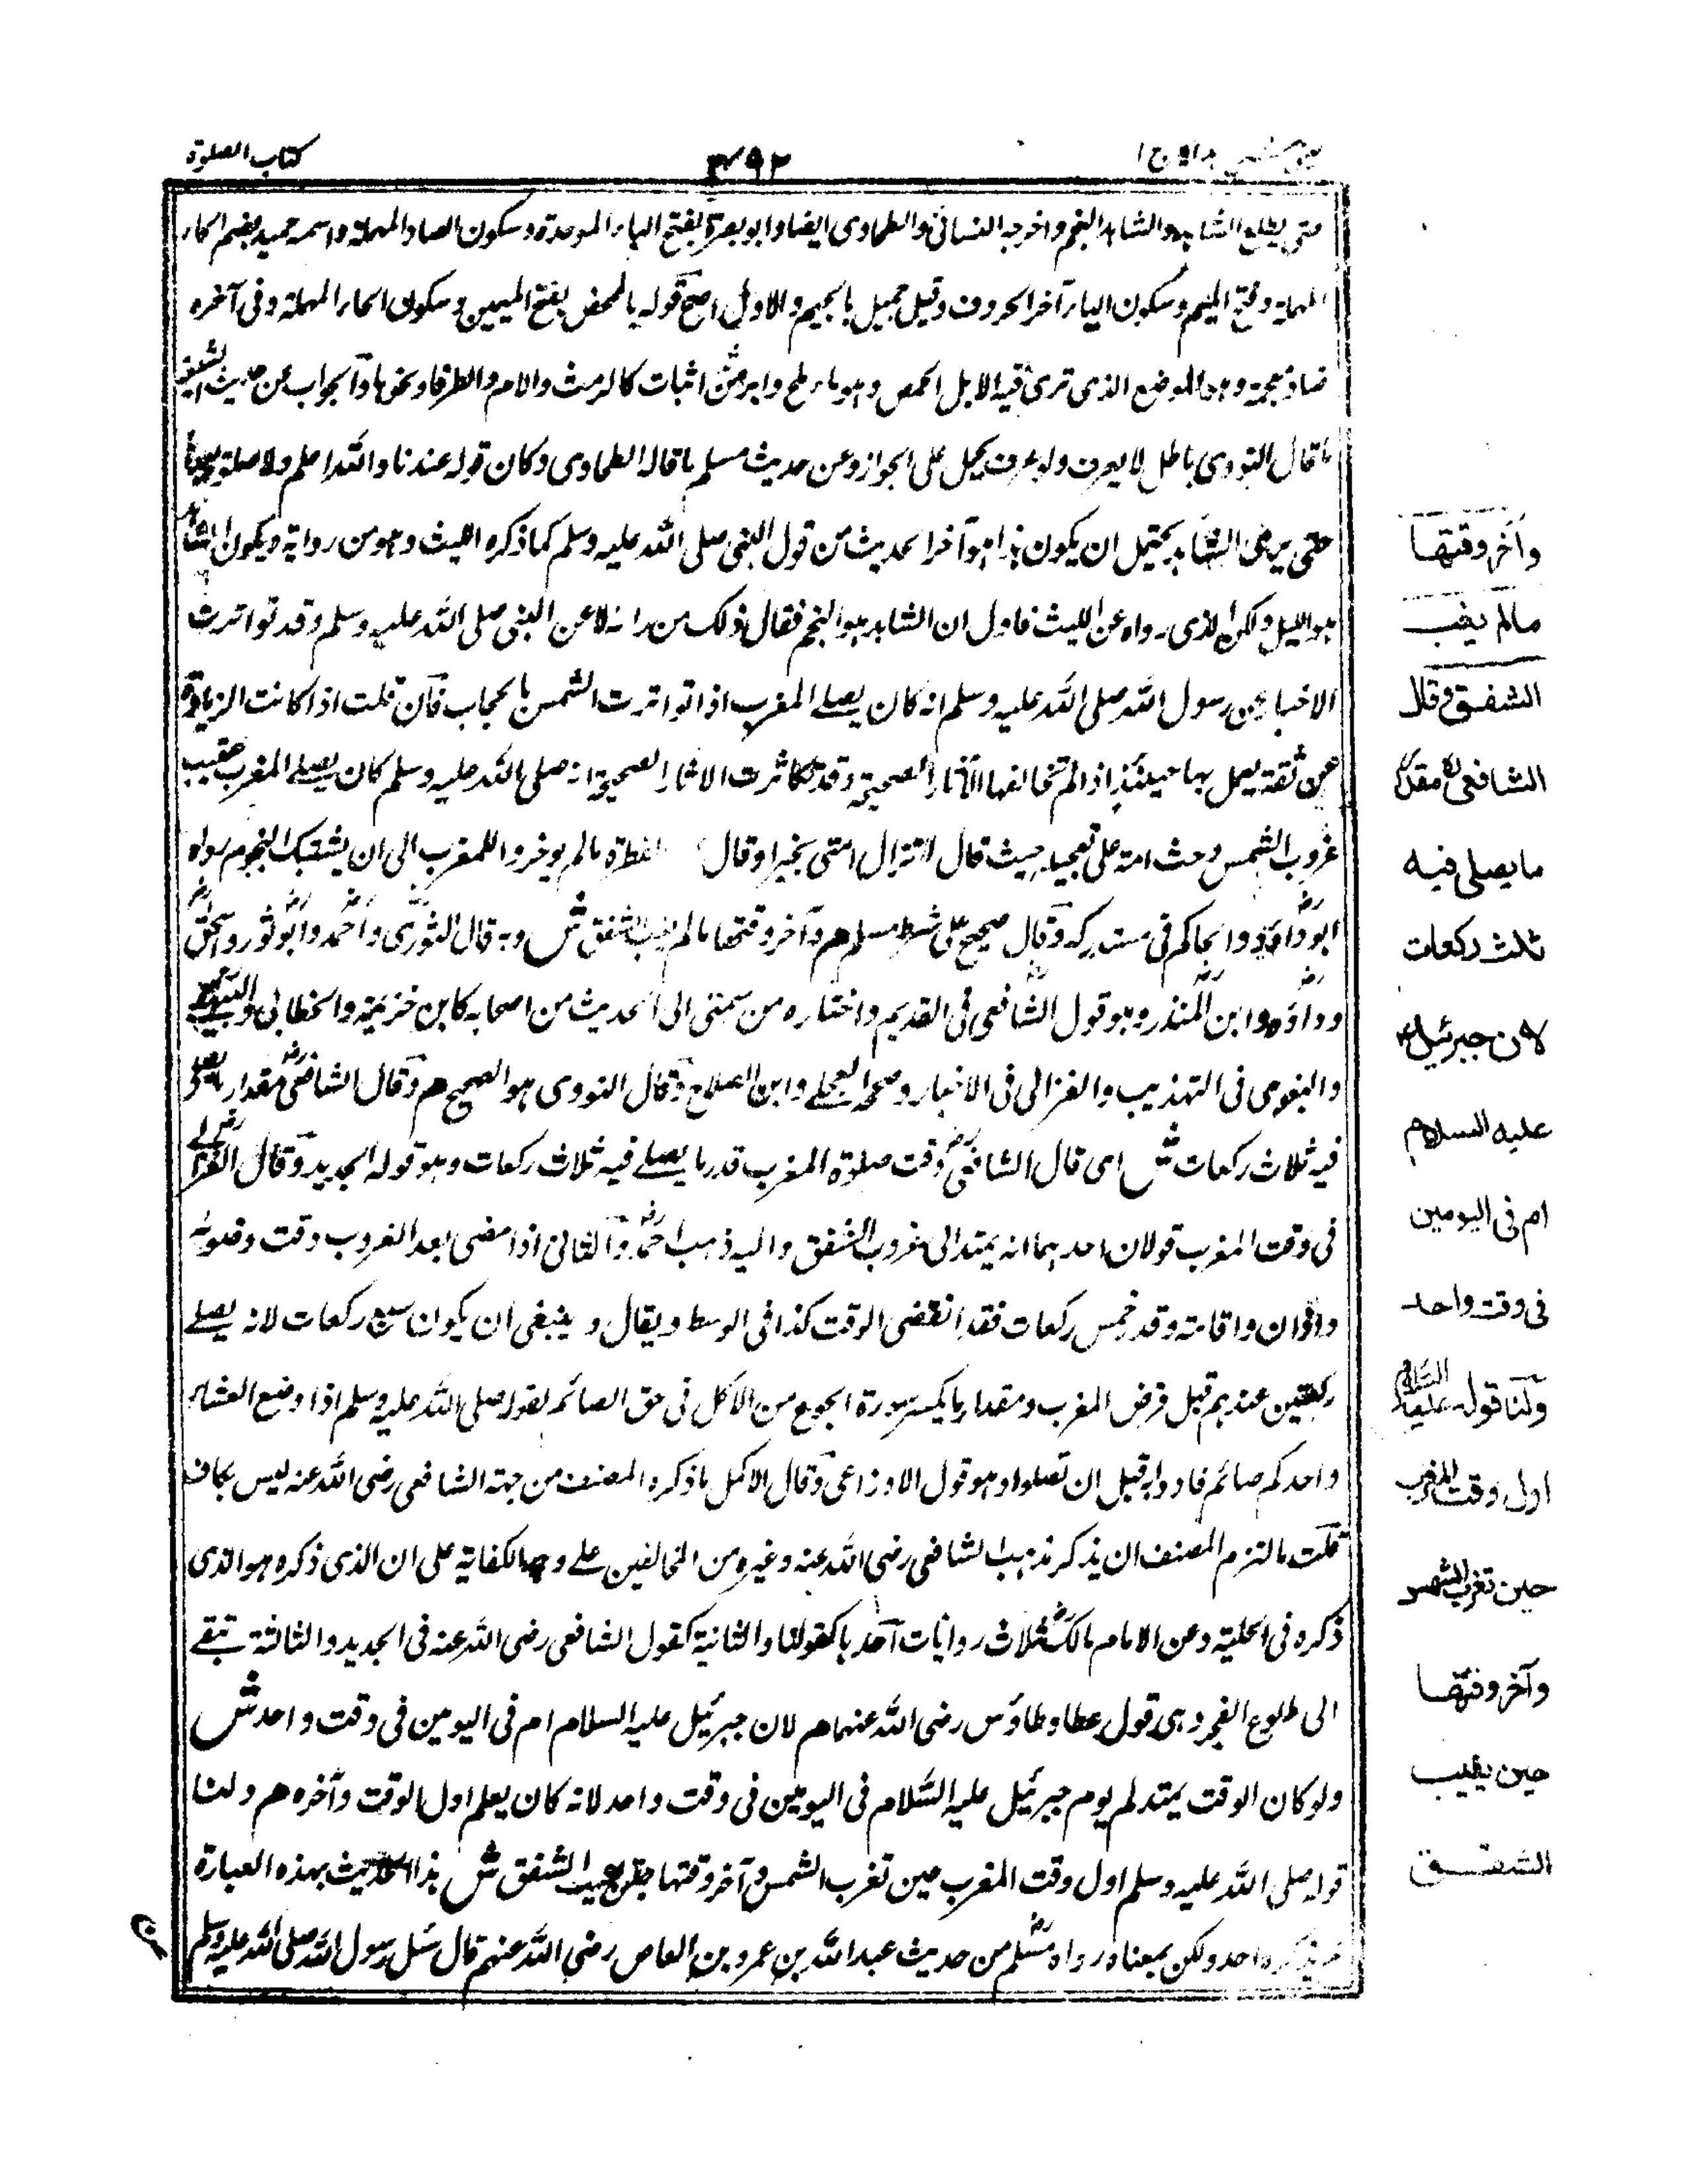 كتاب الصلوة
٣٩٢
حتى يطلع الشاهد والشاهد النجم واخرجه النسائى والطحاوى ايضا وابو بصرة بفتح الباء الموحدة وسكون الصاد المهملة واسمه حميد بضم الحاء
المهملة وفتح الميم وسكون الياء آخر الحروف وقيل جميل بالجيم والاول اصح قوله بالمخمص بفتح الميمين وسكون الخاء المهملة وفى آخره
ضاد معجمة وهو الموضع الذى ترعى فيه الابل الحمص وهو ما ملح وامر من النبات كالرمث والاثل والطرفا ونحوها والجواب عن حديث
ما قال النووى باطل لا يعرف ولو عرف يحمل على الجواز وعن حديث مسلم ما قاله الطحاوى وكان قوله عندنا والله اعلم ولا صلوة بعدها
حتى يرى الشاهد يحتمل ان يكون هذا هو آخر الحديث من قول النبى صلى الله عليه وسلم كما ذكره الليث وهو من رواية ويكون الشاهد
هو الليل ولكن الذى رواه عن الليث فاول ان الشاهد هو النجم فقال ذلك من رائه لا عن النبى صلى الله عليه وسلم وقد تواترت
الاخبار عن رسول الله صلى الله عليه وسلم انه كان يصلے المغرب اذا تواترت الشمس بالحجاب فان قلت اذا كانت الزيادة
عن ثقة يعمل بها حينئذ اذا لم تخالفها الآثار الصحيحة وقد تكاثرت الاثار الصحيحة انه صلى الله عليه وسلم كان يصلے المغرب عقيب
غروب الشمس وحث امته على تعجيلها حيث قال لا تزال امتى بخير او قال الفطرة ما لم يوخروا المغرب الى ان يشتبك النجوم رواه
ابو داؤد والحاكم فى مستدركه وقال صحيح على شرط مسلم هم وآخر وقتها ما لم يغب الشفق ش وبه قال الثورى واحمد وابو ثور واسحق
وداؤد وابن المنذر وهو قول الشافعى فى القديم واختاره من سمتنى الى الحديث من اصحابه كابن خزيمة والخطابى والبيهقى
والبغوى فى التهذيب والغزالى فى الاخبار وصححه العجلے وابن الصلاح وقال النووى هو الصحيح هم وقال الشافعى مقدار ما يصلى
فيه ثلاث ركعات ش اى قال الشافعى وقت صلوة المغرب قدر ما يصلے فيه ثلاث ركعات وهو قوله الجديد وقال الغزالى
فى وقت المغرب قولان احدهما انه يمتد الى غروب الشفق واليه ذهب احمد والثانى اذا مضى بعد الغروب وقت وضوئه
واذان واقامته وقدر خمس ركعات فقد انقضى الوقت كذا فى الوسط ويقال وينبغى ان يكون سبع ركعات لانه يصلے
ركعتين عندهم قبل فرض المغرب ومقدار ما يكسر سورة الجوع من الاكل فى حق الصائم لقوله صلى الله عليه وسلم اذا وضع العشاء
واحدكم صائم فابدوا به قبل ان تصلوا وهو قول الاوزاعى وقال الاكمل ما ذكره المصنف من جهة الشافعى رضى الله عنه ليس بكاف
قلت ما التزم المصنف ان يذكر مذهب الشافعى رضى الله عنه وغيره من المخالفين على وجه الكفاية على ان الذى ذكره هو الذى
ذكره فى الحلية وعن الامام مالك ثلاث روايات احدها كقولنا والثانية كقول الشافعى رضى الله عنه فى الجديد والثالثة تبقے
الى طلوع الفجر وهى قول عطا وطاؤس رضى الله عنهما هم لان جبرئيل عليه السلام ام فى اليومين فى وقت واحد ش
ولو كان الوقت يمتد لم يوم جبرئيل عليه السلام فى اليومين فى وقت واحد لانه كان يعلم اول الوقت وآخره هم ولنا
قوله صلى الله عليه وسلم اول وقت المغرب حين تغرب الشمس وآخر وقتها حين يغيب الشفق ش هذا الحديث بهذه العبارة
لم يذكره احد ولكن بمعناه رواه مسلم من حديث عبد الله بن عمرو بن العاص رضى الله عنهم قال سئل رسول الله صلى الله عليه وسلم
وآخر وقتها
مالم يغب
الشفق وقال
الشافعى مقدار
ما يصلى فيه
ثلث ركعات
لان جبرئيل
عليه السلام
ام فى اليومين
فى وقت واحد
ولنا قوله عليه السلام
اول وقت المغرب
حين تغرب الشمس
وآخر وقتها
حين يغيب
الشفق